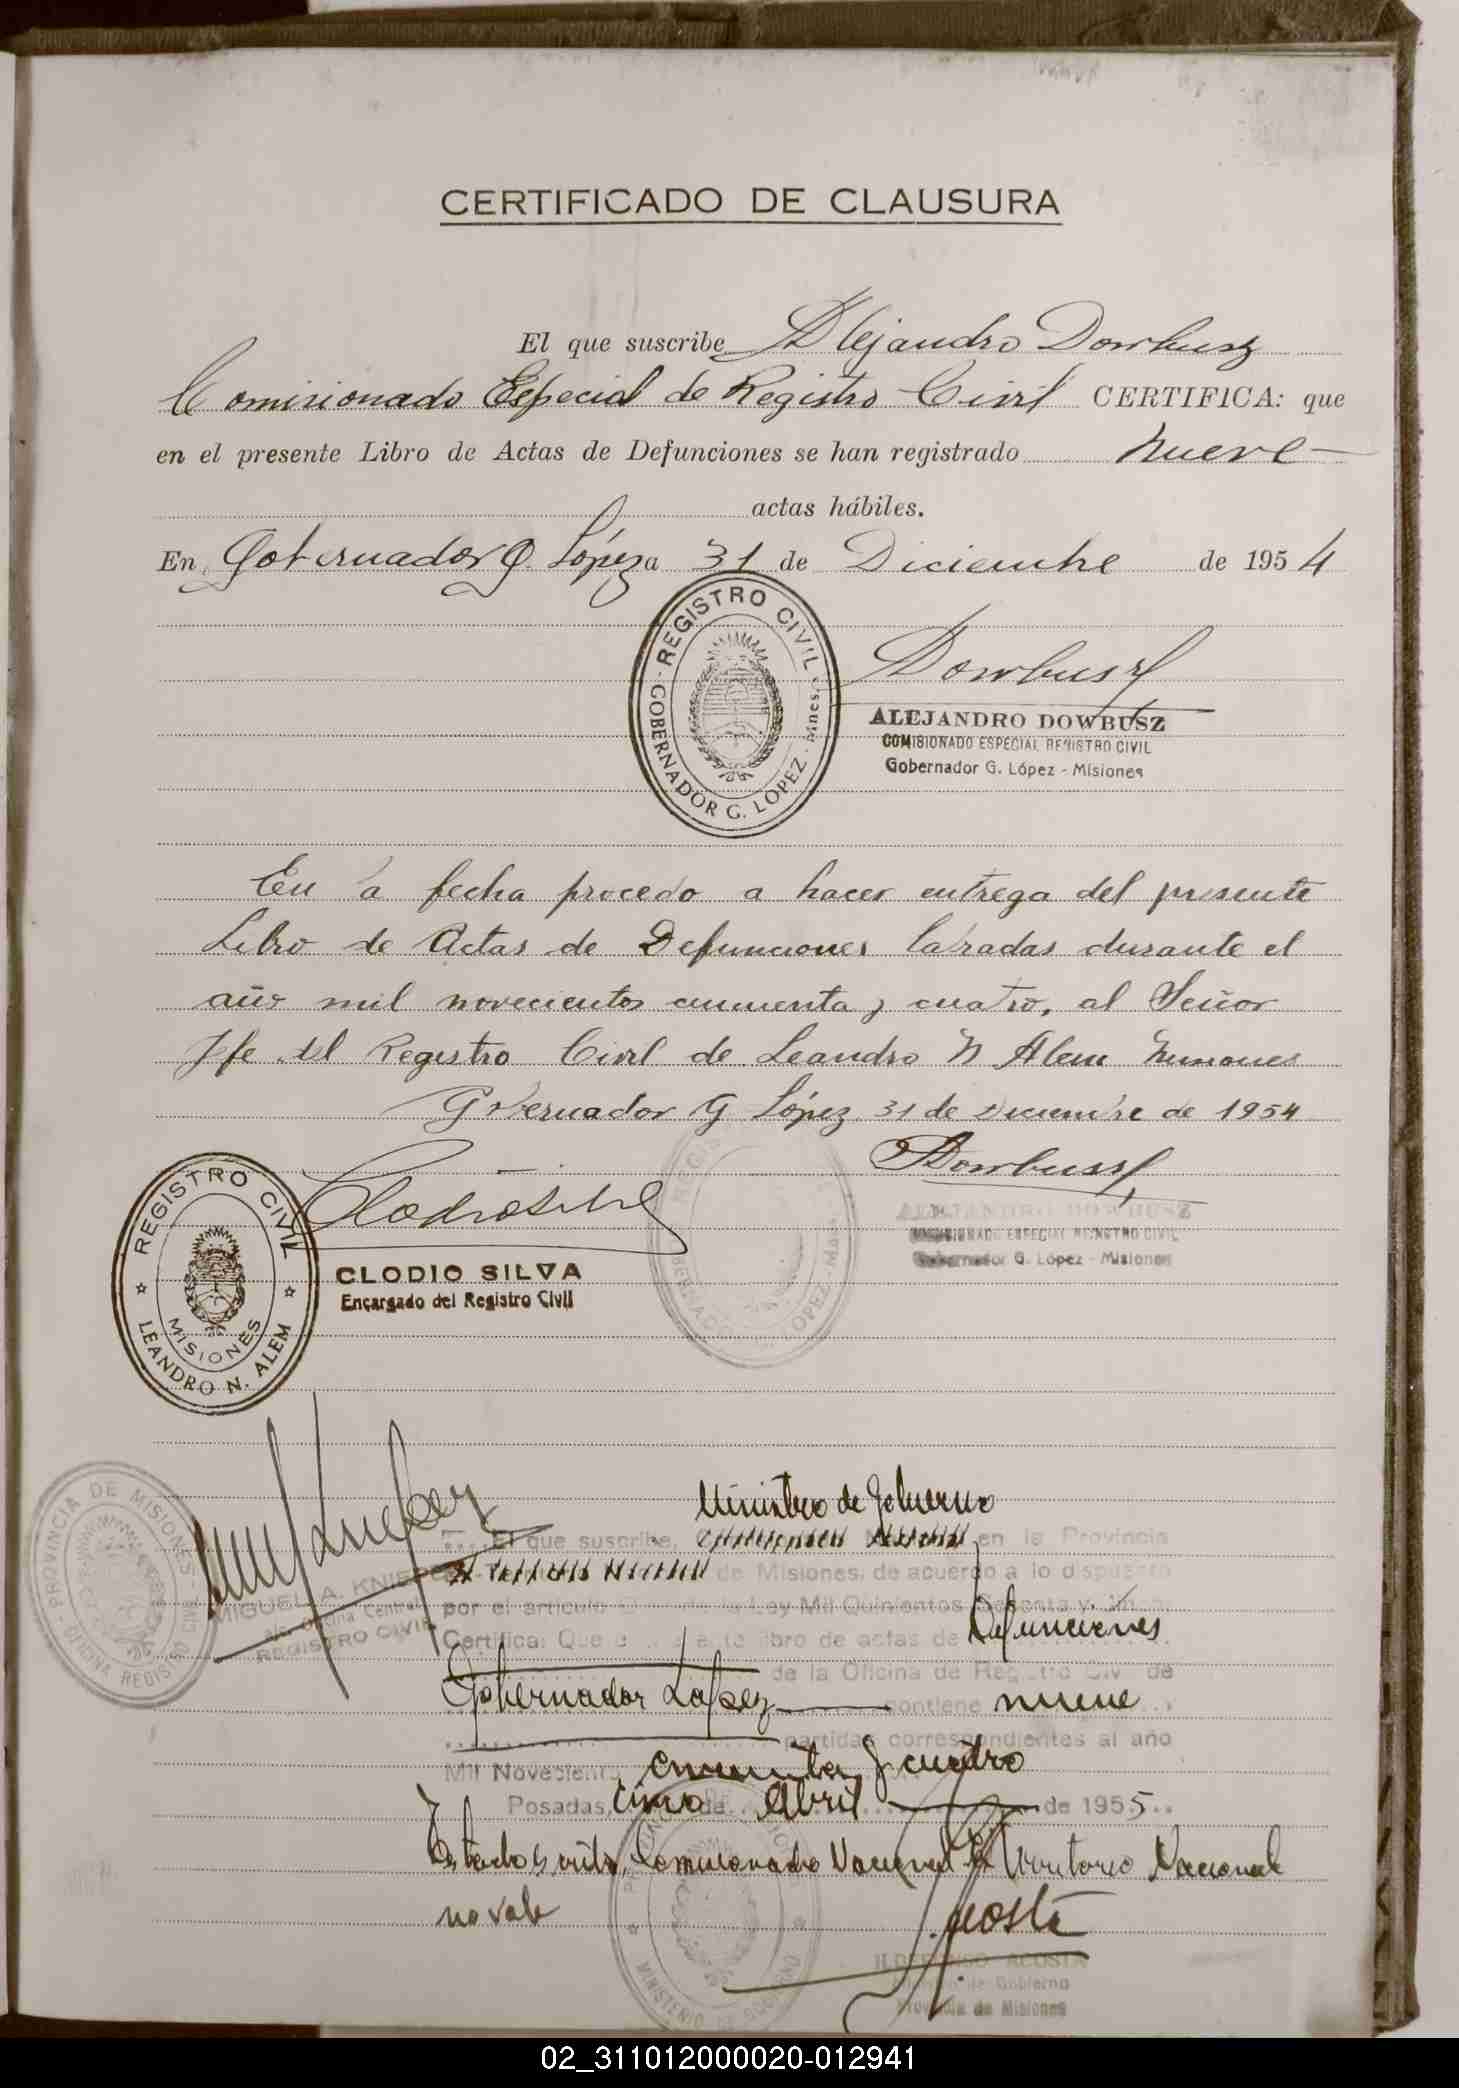 CERTIFICADO DE CLAUSURA
El que suscribe Alejandro Dowbusz
Comisionado Especial de Registro Civil CERTIFICA: que
en el presente Libro de Actas de Defunciones se han registrado nueve
actas hábiles.
En Gobernador G. López a 31 de Diciembre de 1954
REGISTRO CIVIL
GOBERNADOR G. LOPEZ - Mnes.
Dowbusz
ALEJANDRO DOWBUSZ
COMISIONADO ESPECIAL REGISTRO CIVIL
Gobernador G. López - Misiones
En la fecha procedo a hacer entrega del presente
Libro de Actas de Defunciones labradas durante el
año mil novecientos cincuenta y cuatro, al Señor
Jefe del Registro Civil de Leandro N Alem Misiones
Gobernador G López 31 de Diciembre de 1954
Dowbusz
ALEJANDRO DOWBUSZ
COMISIONADO ESPECIAL REGISTRO CIVIL
Gobernador G. López - Misiones
REGISTRO CIVIL
GOBERNADOR G. LOPEZ - Mnes.
REGISTRO CIVIL
MISIONES
LEANDRO N. ALEM
Clodio Silva
CLODIO SILVA
Encargado del Registro Civil
PROVINCIA DE MISIONES
OFICINA REGISTRO CIVIL
MIGUEL A.
Oficina Central
REGISTRO CIVIL
Ministro de Gobierno
El que suscribe, en la Provincia
de Misiones, de acuerdo a lo dispuesto
por el artículo de la Ley Mil Quinientos Sesenta y
Certifica: Que libro de actas de Defunciones
de la Oficina de Registro Civil de
Gobernador López contiene nueve
partidas correspondientes al año
Mil Novecientos cincuenta y cuatro
Posadas, cinco de Abril de 1955
Testado y entre Comisionado Nacional Territorio Nacional
no vale
Acosta
ILDEFONSO ACOSTA
Ministro de Gobierno
Provincia de Misiones
MINISTERIO DE GOBIERNO
02_311012000020-012941